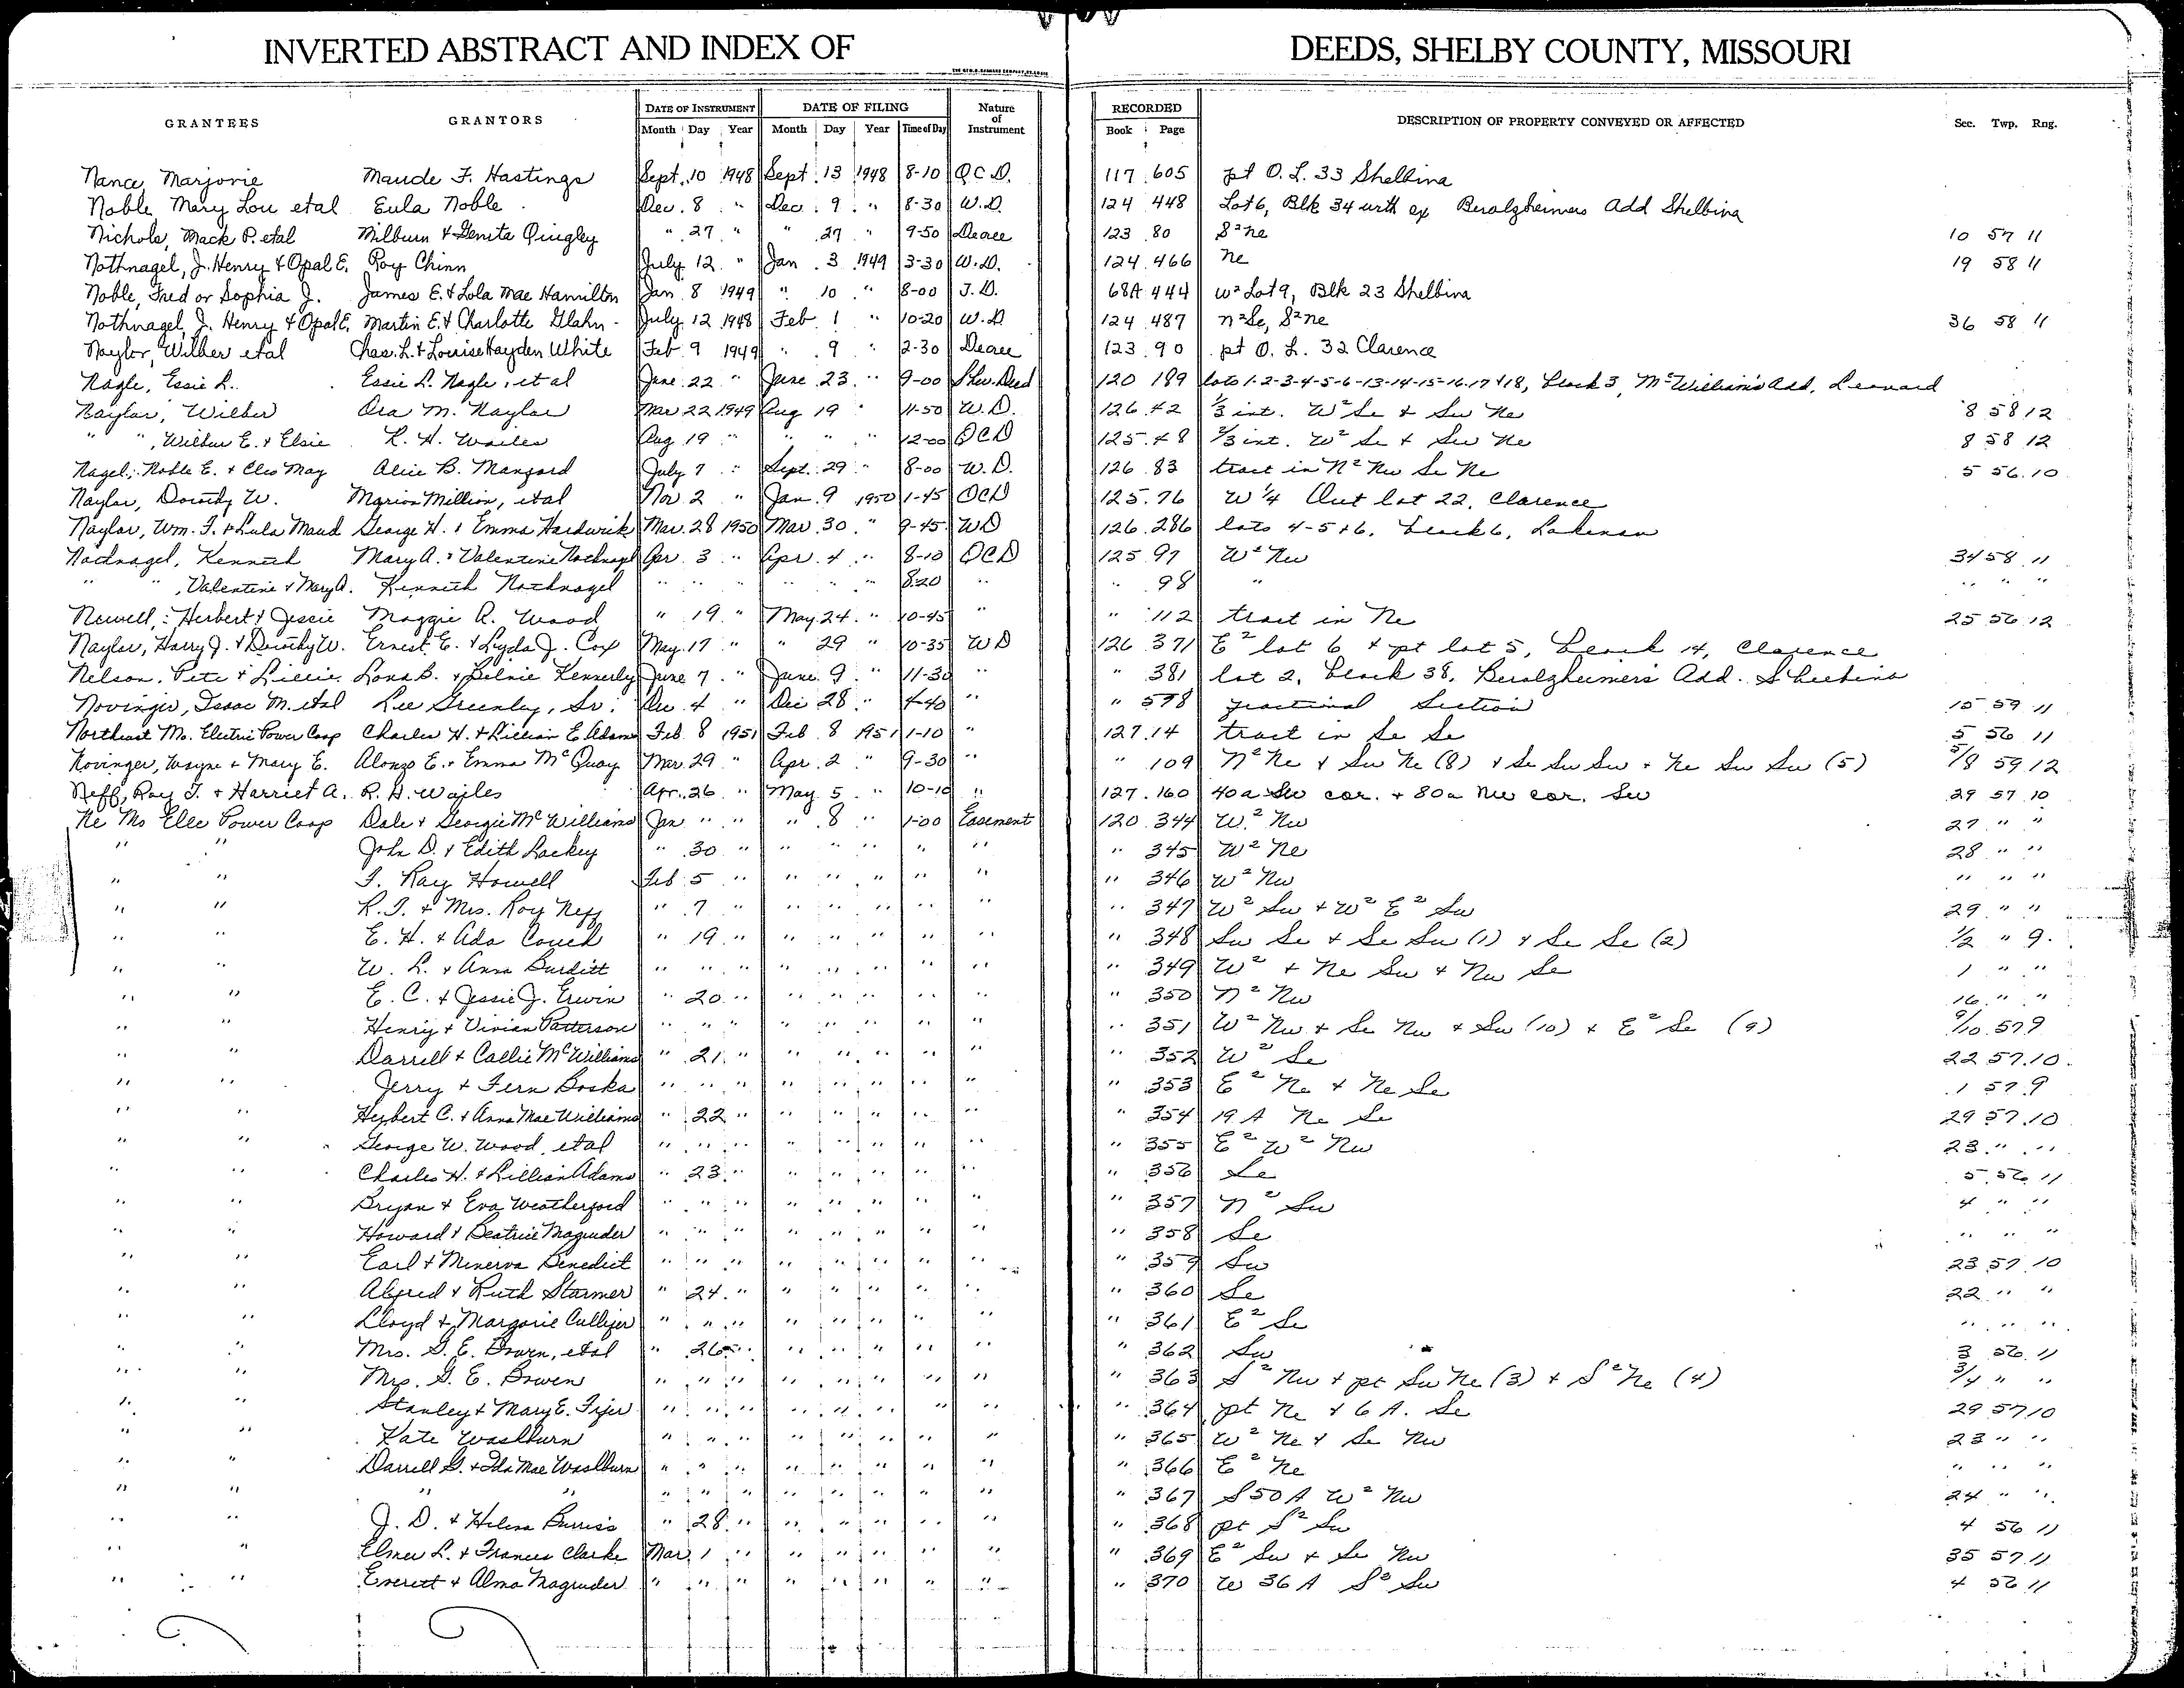 INVERTED ABSTRACT AND INDEX OF DEEDS, SHELBY COUNTY, MISSOURI
GRANTEES GRANTORS DATE OF INSTRUMENT DATE OF FILING Nature of Instrument RECORDED DESCRIPTION OF PROPERTY CONVEYED OR AFFECTED Sec. Twp. Rng.
Month Day Year Month Day Year Time of Day Book Page
Nance, Marjorie Maude F. Hastings Sept. 10 1948 Sept. 13 1948 8-10 Q C D. 117 605 pt O. L. 33 Shelbina
Noble, Mary Lou etal Eula Noble Dec. 8 " Dec. 9 " 8-30 W.D. 124 448 Lot 6, Blk 34 wth ex Beralzheimers Add Shelbina
Nichols, Mack P. etal Milburn & Genita Quigley " 27 " " 27 " 9-50 Decree 123 80 S²ne 10 57 11
Nothnagel, J. Henry & Opal E. Roy Chinn July 12 " Jan. 3 1949 3-30 W.D. 124 466 ne 19 58 11
Noble, Fred or Sophia J. James E. & Lola Mae Hamilton Jan 8 1949 " 10 " 8-00 T.D. 68A 444 W² Lot 9, Blk 23 Shelbina
Nothnagel, J. Henry & Opal E. Martin E. & Charlotte Glahn July 12 1948 Feb 1 " 10-20 W.D 124 487 n²Se, S²ne 36 58 11
Naylor, Wilber etal Chas. L. & Louise Hayden White Feb 9 1949 " 9 " 2-30 Decree 123 90 pt O. L. 32 Clarence
Nagle, Essie L. Essie L. Nagle, et al June 22 " June 23 " 9-00 Shw. Deed 120 189 lots 1-2-3-4-5-6-13-14-15-16-17 & 18, block 3, McWilliam's Add. Leonard
Naylor, Wilber Ora M. Naylor Mar 22 1949 Aug 19 " 11-50 W.D. 126 42 1/3 int. W² Se & Sw Ne 8 58 12
" ", Wilbur E. & Elsie R. H. Wailes Aug 19 " " " " 12-00 QCD 125 48 2/3 int. W² Se & Sw Ne 8 58 12
Nagel, Noble E. & Cleo May Alice B. Mangard July 7 " Sept. 29 " 8-00 W.D. 126 83 tract in N² Nw Se Ne 5 56 10
Naylor, Dorothy W. Marion Million, etal Nov 2 " Jan. 9 1950 1-45 QCD 125 76 W 1/4 Out lot 22, Clarence
Naylor, Wm. T. & Lula Maud George H. & Emma Hardwick Mar. 28 1950 Mar. 30 " 9-45 WD 126 286 lots 4-5 & 6, block 6, Lakenan
Nothnagel, Kenneth Mary A. & Valentine Nothnagel Apr 3 " Apr. 4 " 8-10 QCD 125 97 W² Nw 34 58 11
" ", Valentine & Mary A. Kenneth Nothnagel " " " " " " 8-20 " " 98 " " " "
Newell, Herbert & Jessie Maggie A. Wood " 19 " May 24 " 10-45 " " 112 tract in Ne 25 56 12
Naylor, Harry J. & Dorothy W. Ernest E. & Lyda J. Cox May 17 " " 29 " 10-35 WD 126 371 E² lot 6 & pt lot 5, block 14, Clarence
Nelson, Pete & Lillie Lona B. & Bilnie Kennerly June 7 " June 9 " 11-30 " " 381 lot 2, block 38, Beralzheimer's Add. Shelbina
Novinger, Isaac M. etal Lee Greenley, Sr. Dec 4 " Dec 28 " 4-40 " " 578 fractional Section 15 59 11
Northeast Mo. Electric Power Coop Charles H. & Lillian E Adams Feb. 8 1951 Feb 8 1951 1-10 " 127 14 tract in Se Se 5 56 11
Novinger, Wayne & Mary E. Alonzo E. & Emma McQuay Mar. 29 " Apr. 2 " 9-30 " " 109 N² Ne & Sw Ne (8) & Se Sw Sw & Ne Sw Sw (5) 5/8 59 12
Neff, Roy T. & Harriet A. R. H. Wailes Apr. 26 " May 5 " 10-10 " 127 160 40a Sw cor. & 80a Nw cor. Sw 29 57 10
Ne Mo Elec Power Coop Dale & Georgie McWilliams Jan " " " 8 " 1-00 Easement 120 344 W² Nw 27 " "
" " John D. & Edith Lackey " 30 " " " " " " " 345 W² Ne 28 " "
" " T. Ray Howell Feb 5 " " " " " " " 346 W² Nw " " "
" " R. T. & Mrs. Roy Neff " 7 " " " " " " " 347 W² Sw & W² E² Sw 29 " "
" " E. H. & Ada Couch " 19 " " " " " " " 348 Sw Se & Se Sw (1) & Se Se (2) 1/2 " 9
" " W. L. & Anna Burditt " " " " " " " " " 349 W² & Ne Sw & Nw Se 1 " "
" " E. C. & Jessie J. Erwin " 20 " " " " " " " 350 N² Nw 16 " "
" " Henry & Vivian Patterson " " " " " " " " " 351 W² Nw & Se Nw & Sw (10) & E² Se (9) 9/10 57 9
" " Darrell & Callie McWilliams " 21 " " " " " " " 352 W² Se 22 57 10
" " Jerry & Fern Boska " " " " " " " " " 353 E² Ne & Ne Se 1 57 9
" " Herbert C. & Anna Mae Williams " 22 " " " " " " " 354 19 A Ne Se 29 57 10
" " George W. Wood, etal " " " " " " " " " 355 E² W² Nw 23 " "
" " Charles H. & Lillian Adams " 23 " " " " " " " 356 Se 5 56 11
" " Bryan & Eva Weatherford " " " " " " " " " 357 N² Sw 4 " "
" " Howard & Beatrice Magruder " " " " " " " " " 358 Se " " "
" " Earl & Minerva Benedict " " " " " " " " " 359 Sw 23 57 10
" " Alfred & Ruth Starmer " 24 " " " " " " " 360 Se 22 " "
" " Lloyd & Margorie Cullifer " " " " " " " " " 361 E² Se " " "
" " Mrs. G. E. Bowen, etal " 26 " " " " " " " 362 Sw 3 56 11
" " Mrs. G. E. Bowen " " " " " " " " " 363 S² Nw & pt Sw Ne (3) & S² Ne (4) 3/4 " "
" " Stanley & Mary E. Fifer " " " " " " " " " 364 pt Ne & 6 A. Se 29 57 10
" " Kate Washburn " " " " " " " " " 365 W² Ne & Se Nw 23 " "
" " Darrell G. & Ida Mae Washburn " " " " " " " " " 366 E² Ne " " "
" " " " " " " " " " " " " 367 S 50 A W² Nw 24 " "
" " J. D. & Helena Burriss " 28 " " " " " " " 368 pt S² Sw 4 56 11
" " Elmer L. & Frances Clarke Mar. 1 " " " " " " " 369 E² Sw & Se Nw 35 57 11
" " Everett & Alma Magruder " " " " " " " " " 370 W 36 A S² Sw 4 56 11